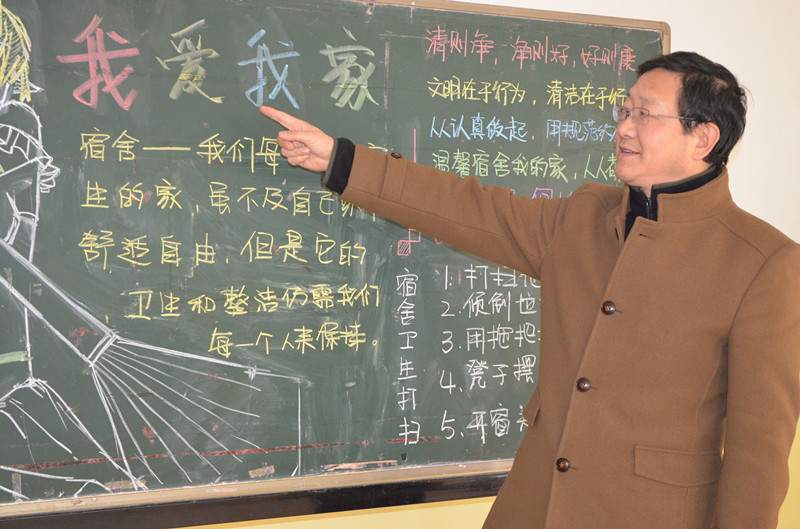 我爱我家
宿舍——我们每
生的家，虽不及自己
舒适自由，但是它的
卫生和整洁仍需我们
每一个人来保持。
清则净，净则好，好则康
文明在于行为，清洁在于
从认真做起，用规范
温馨宿舍我的家，从
宿舍卫生打扫
1.打扫
2.倾倒
3.用拖把
4.凳子摆
5.开宿